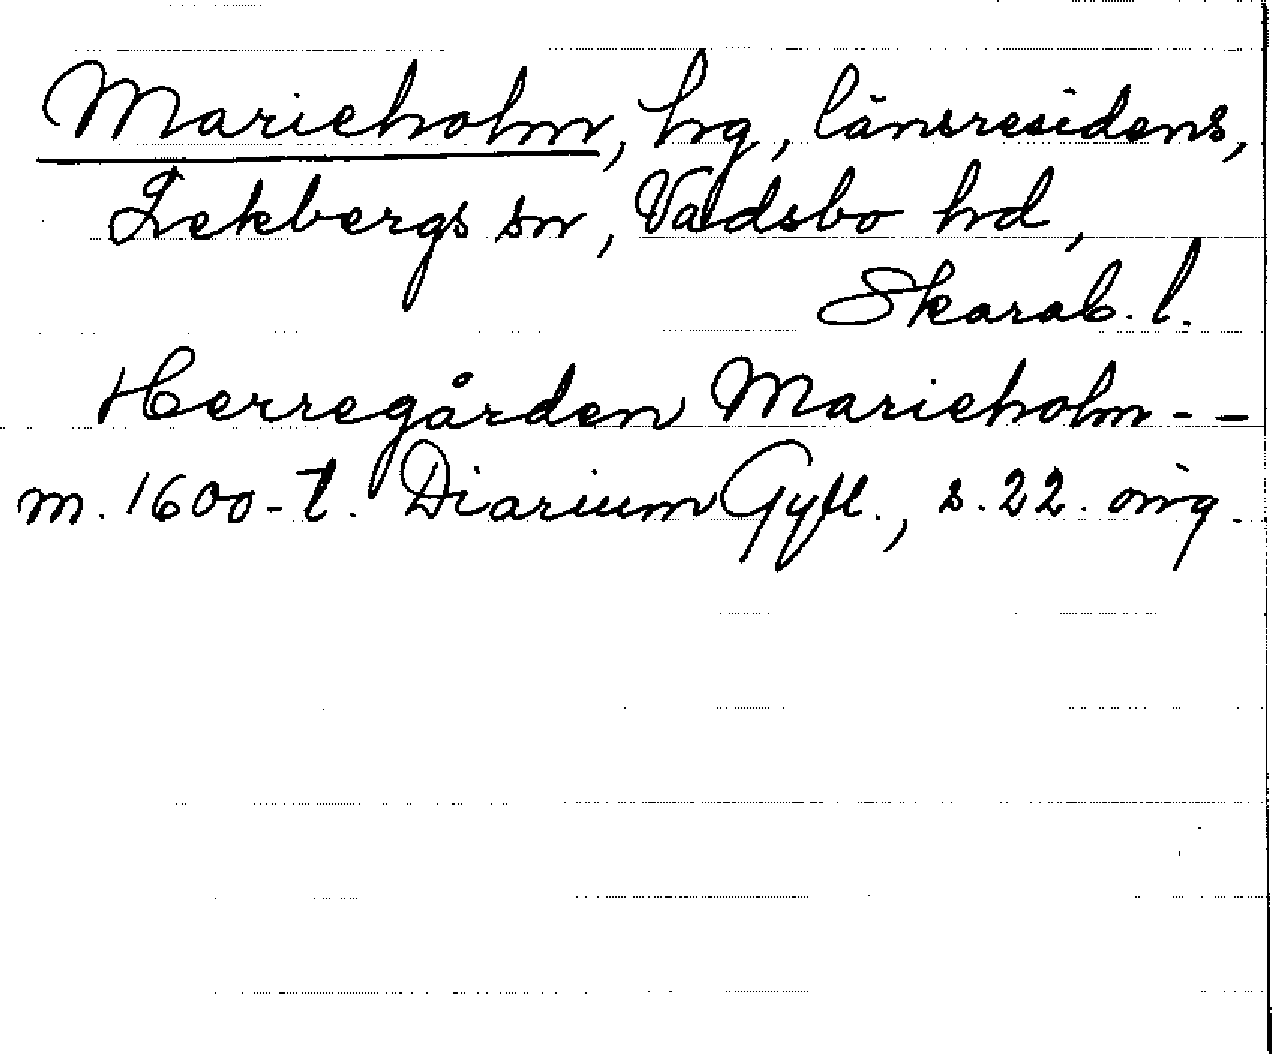 Marieholm, hrg, länsresidens,
Lekbergs sn, Vadsbo hrd,
Skarab. l.
Herregården Marieholm - -
m. 1600-t. Diarium Gyll., s. 22. omg.